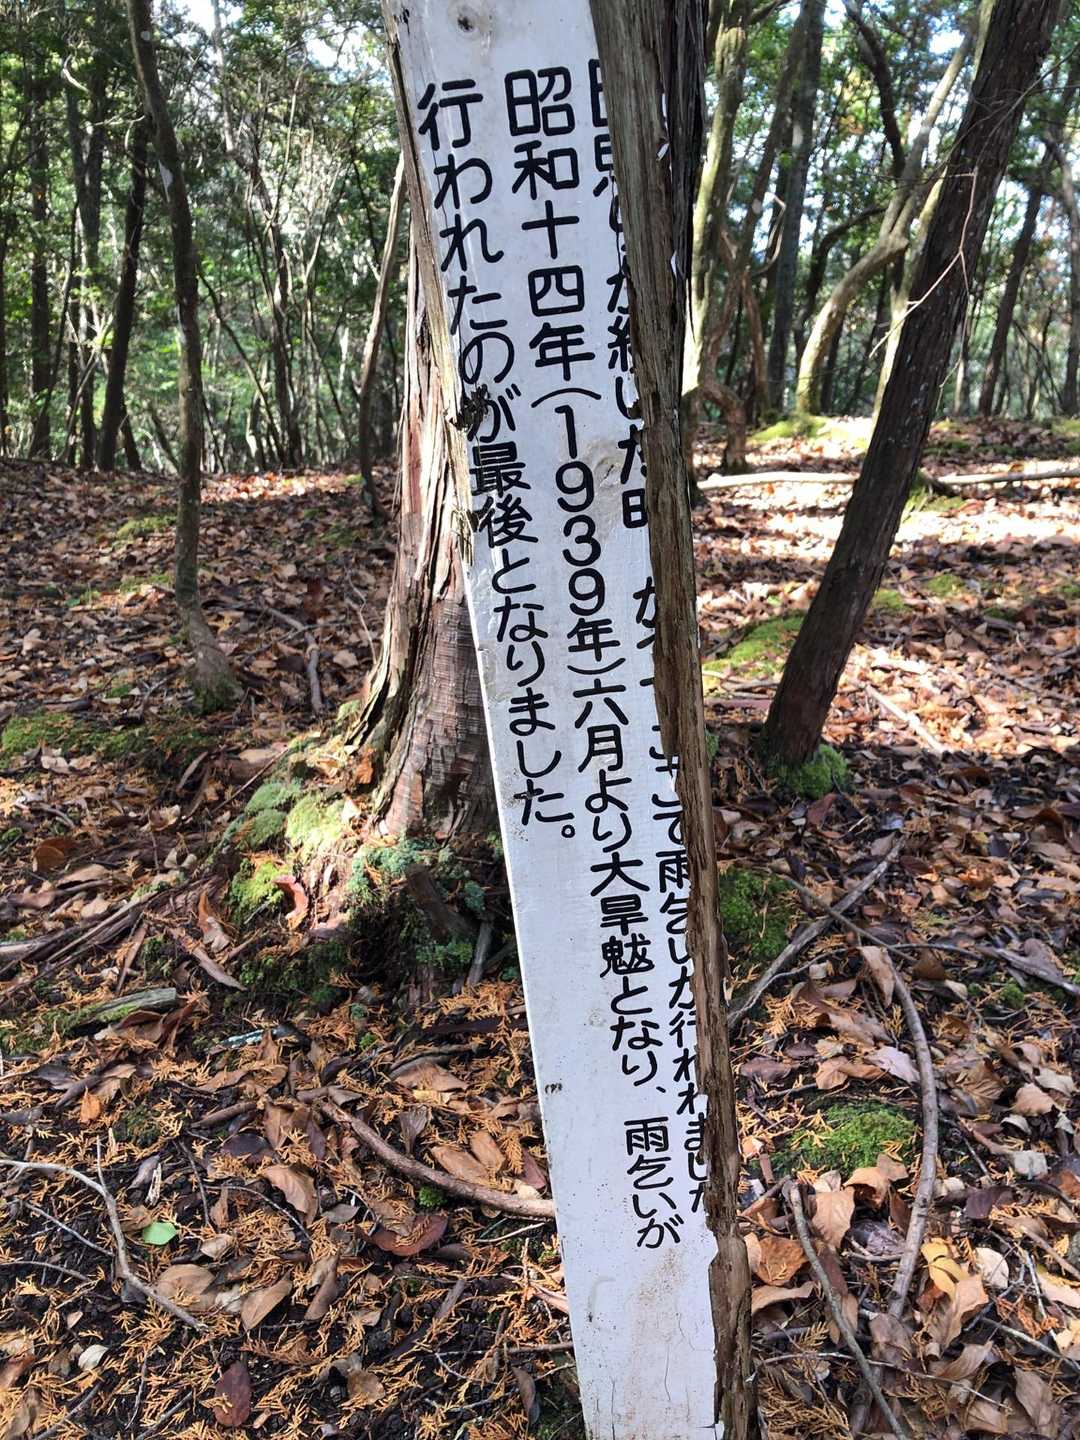 が続いた時 ここで雨乞いが行われました
昭和十四年(1939年)六月より大旱魃となり、雨乞いが
行われたのが最後となりました。